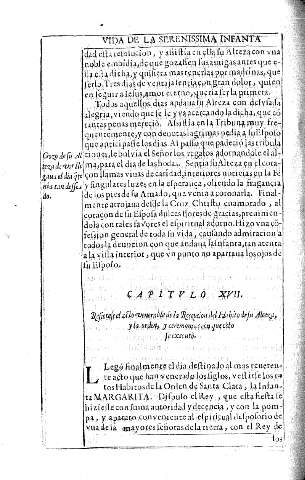 VIDA DE LA SERENISSIMA INFANTA
dad esta resolucion, y assistia en ella su Alteza con vna
noble embidia, de que gozassen sus amigas antes que
ella esta dicha, y quisiera mas tenerlas por madrinas, que
serlo. Tres dias de ventaja sentia, con gran dolor, quien
en seguir a Iesus, amor eterno, queria ser la primera.
Todos aquellos dias andaua su Alteza con desvsada
alegria, viendo que se le yva acercando la dicha, que
tantas penas mereciò. Assistia en la Tribuna muy fre-
quentemente, y con deuotas lagrimas pedia a su Esposo
que anticipasse los dias. Al passo que padeciò las tribula-
ciones, le bolvia el Señor los regalos adornandole el al-
ma, para el dia de las bodas. Sentia su Alteza en el cora-
çon llamas viuas de caridad, interiores noticias en la Fè
y singulares luzes en la esperança, el olor la fragancia
de los pies de su Amado, que venia a coronarla. Final-
mente arrojaua desde la Cruz Christo enamorado, al
coraçon de su Esposa dulces flores de gracias, preuinien-
dola con tales fauores el espiritual adorno. Hizo vna cõ-
fession general de toda su vida, causando admiracion a
todos la deuocion con que andaua la Infanta, tan atenta
a la vista interior, que vn punto no apartaua los ojos de
su Esposo.
Gozo de su Al-
teza de ver lle-
gar el dia que
tan dessea-
do.
CAPITVLO XVII.
Refierese el acto venerable de la Recepcion del Habito de su Alteza,
y la orden, y ceremonia con que esto
se executò.
LLegò finalmente el dia destinado al mas reueren-
te acto que han venerado los siglos, vestirse los to-
cos Habitos de la Orden de Santa Clara, la Infan-
ta MARGARITA. Dispuso el Rey, que esta fiesta se
hiziesse con suma autoridad y decencia, y con la pom-
pa, y aparato conueniente al espiritual desposorio de
vna de las mayores señoras de la tierra, con el Rey de
los